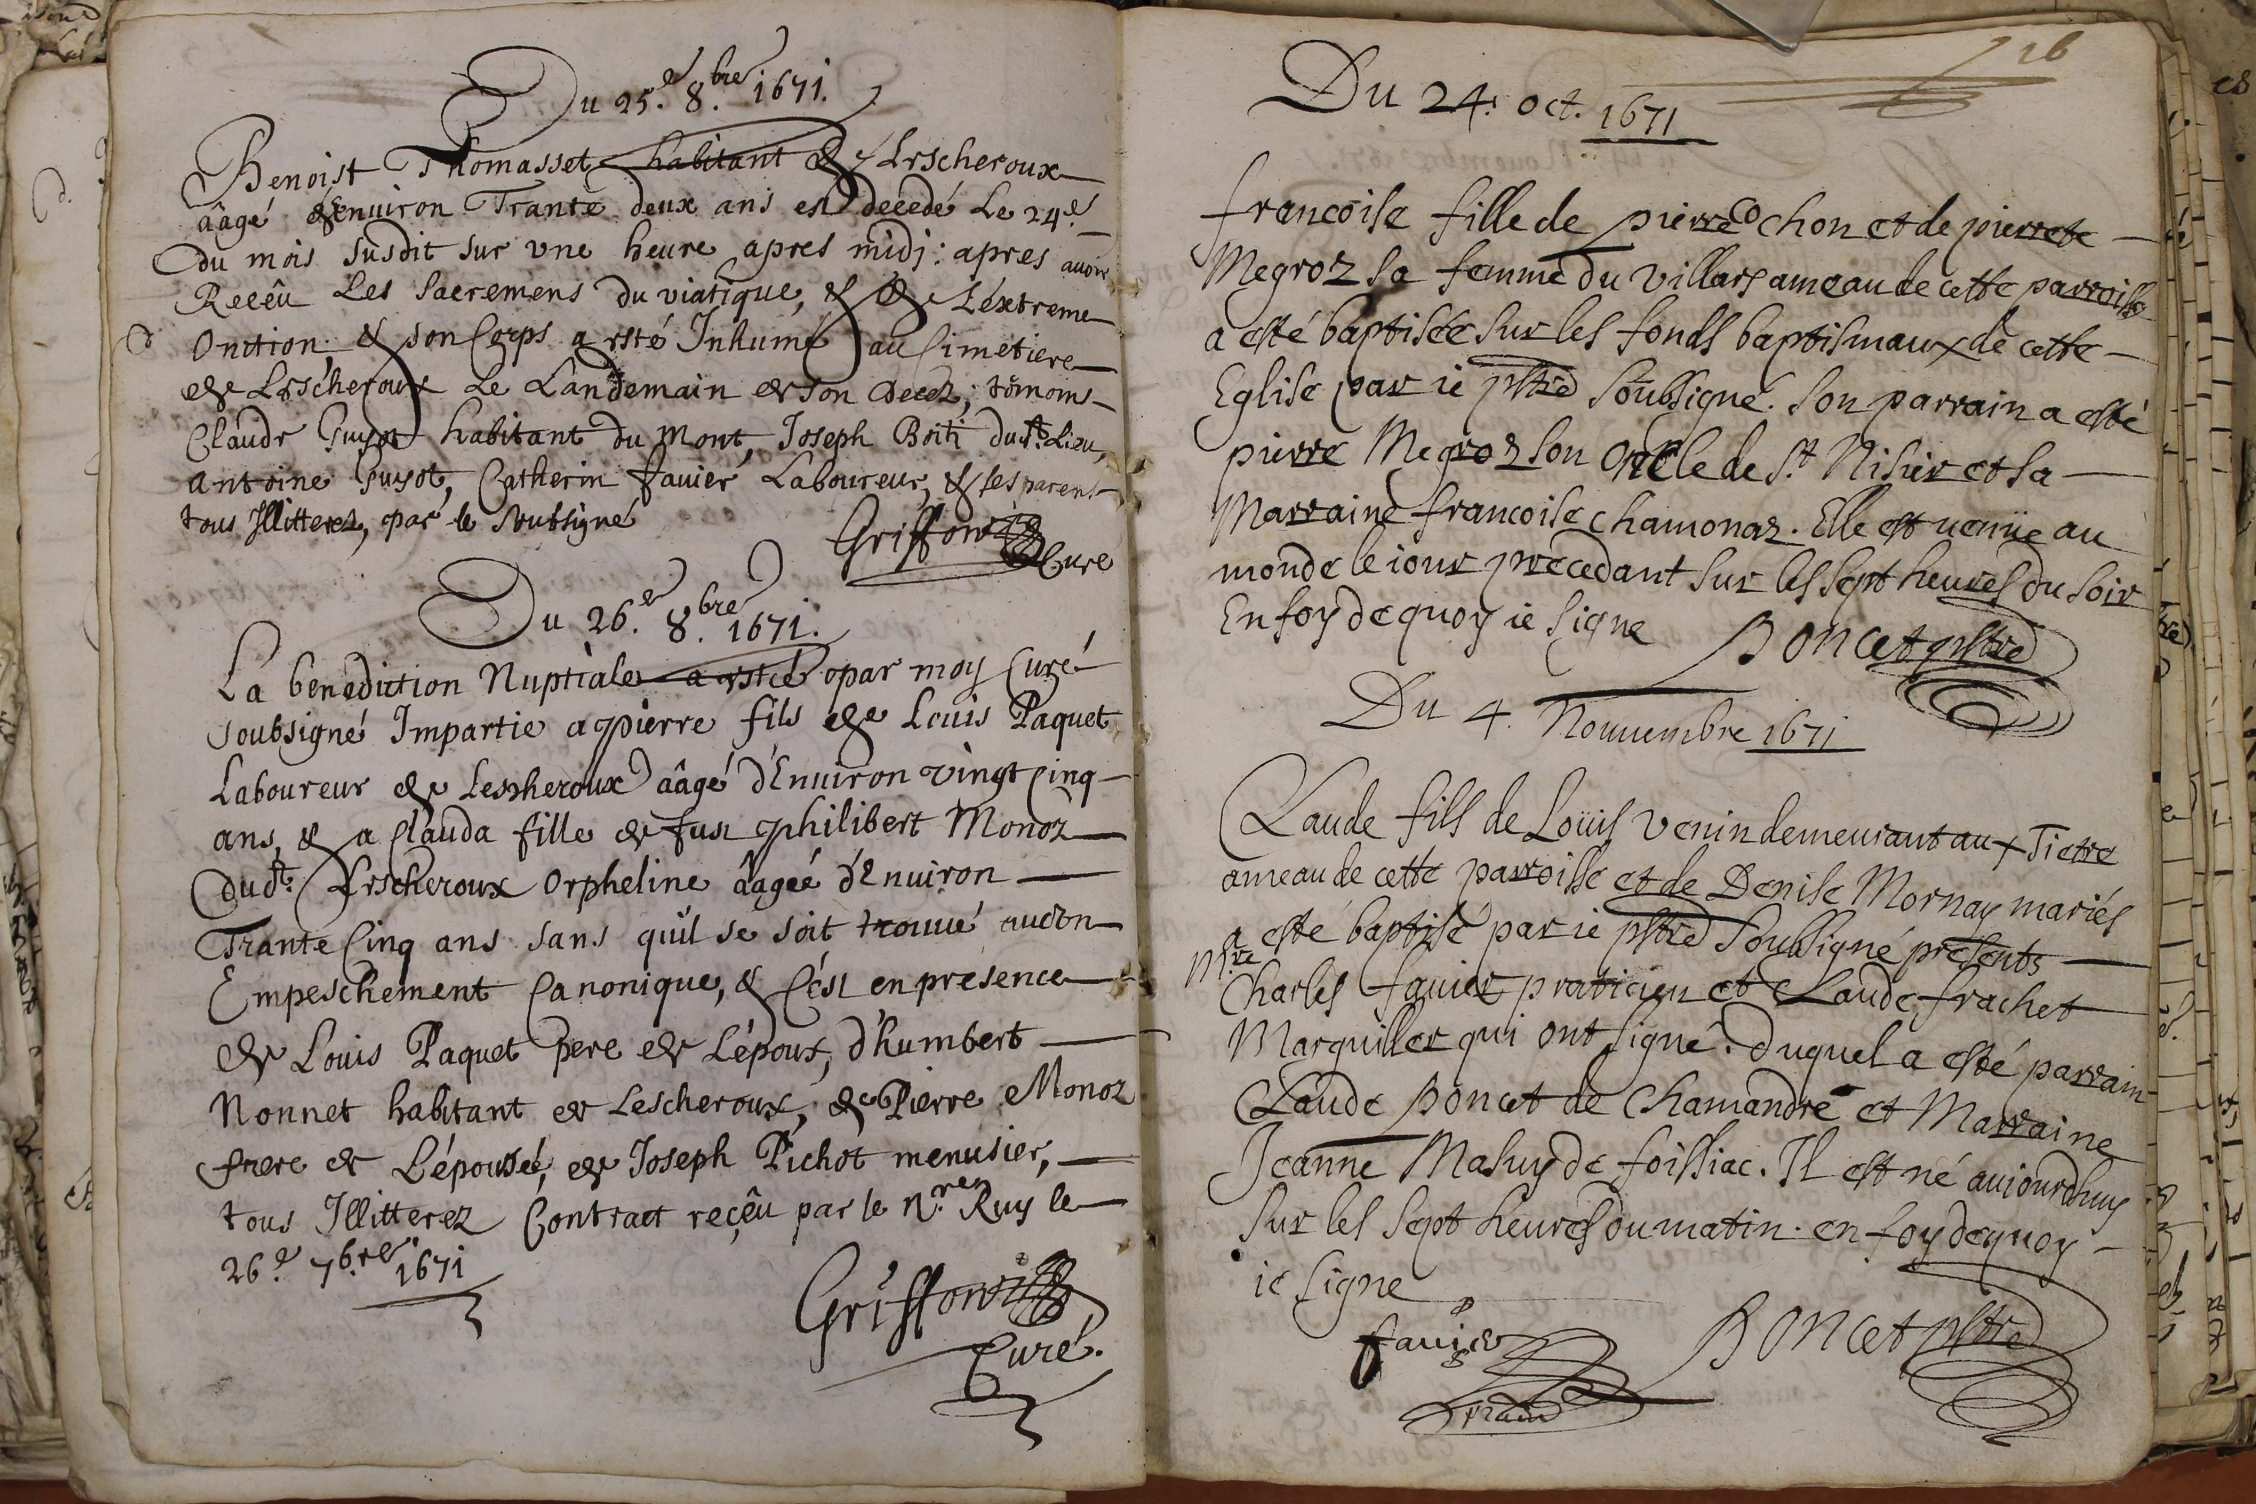 Du 25.e 8.bre 1671.
Benoist Thomasset habitant de Lescheroux
âagé d'Enuiron Trante deux ans est decedé Le 24.e
du mois susdit sur vne heure apres midj: apres auoir
Receû Les Sacremens du viatique, & de L'éxtreme
Onction, & son Corps a esté Inhumé au Cimetiere
de Lescheroux Le Landemain de son decez, témoins
Claude Guyot habitant du mont, Joseph Boiti dudt. Lieu,
antoine Guyot, Catherin fauier Laboureur, & ses parens
tous Illitterez, par le soubsigné
Griffon
Curé
Du 26.e 8.bre 1671.
La benediction Nuptiale a esté par moy Curé
soubsigné Impartie a pierre fils de Louis Paquet
Laboureur de Lescheroux âagé d'Enuiron vingt Cinq
ans, & a Clauda fille de fust philibert Monoz
dudt. Lescheroux Orpheline âagée d'Enuiron
Trante Cinq ans sans qu'il se soit trouué aucun
Empeschement Canonique, & C'est en presence
de Louis Paquet pere de L'époux, d'humbert
Nonnet habitant de Lescheroux, de Pierre Monoz
frere de L'épousée, de Joseph Pichot menusier,
tous Illitterez Contract reçêu par le n.re Ruy le
26.e 7.bre 1671
Griffon
Curé.
126
Du 24. oct. 1671
francoise fille de pierre cochon et de pierrete
Megroz sa femme du villars ameau de cette parroisse
a esté baptisée sur les fonds baptismaux de cette
Eglise par ie pstre soubsigné. Son parrain a esté
pierre Megroz son oncle de St. Nisier et sa
Marraine francoise chamonaz. Elle est venüe au
monde le iour precedant sur les sept heures du soir
En foy de quoy ie signe Boncet pstre
Du 4. Nouuembre 1671
Claude fils de Loüis venin demeurant aux Tietre
ameau de cette parroisse et de Denise Mornay mariés
a esté baptisé par ie pstre soubsigné presents
M.re Charles fauier praticien et Claude frachet
Marguiller qui ont signé. duquel a esté parrain
Claude Boncet de Chamandré et Marraine
Jeanne Mahuy de foissiac. Il est né auiourdhuy
sur les sept heures du matin. en foy de quoy
ie signe
fauier Boncet pstre